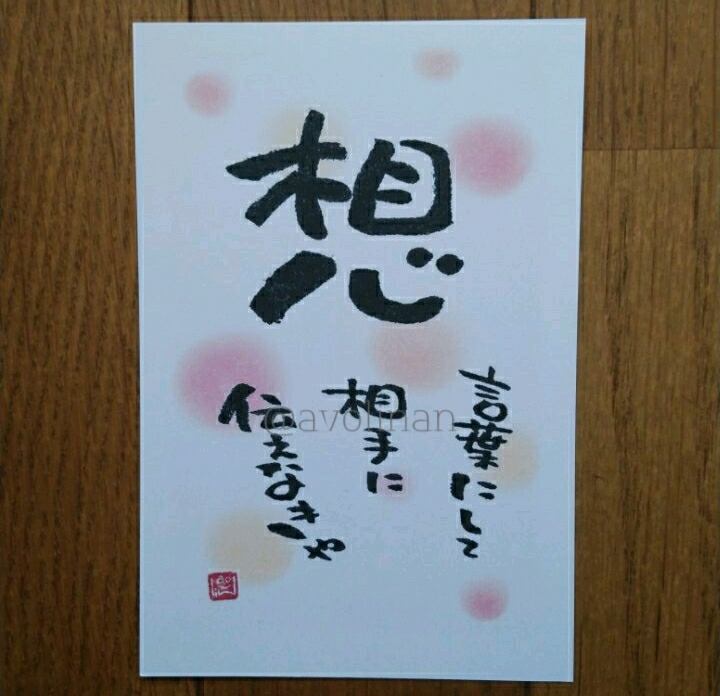 想
言葉にして
相手に
伝えなきゃ
@avohnan